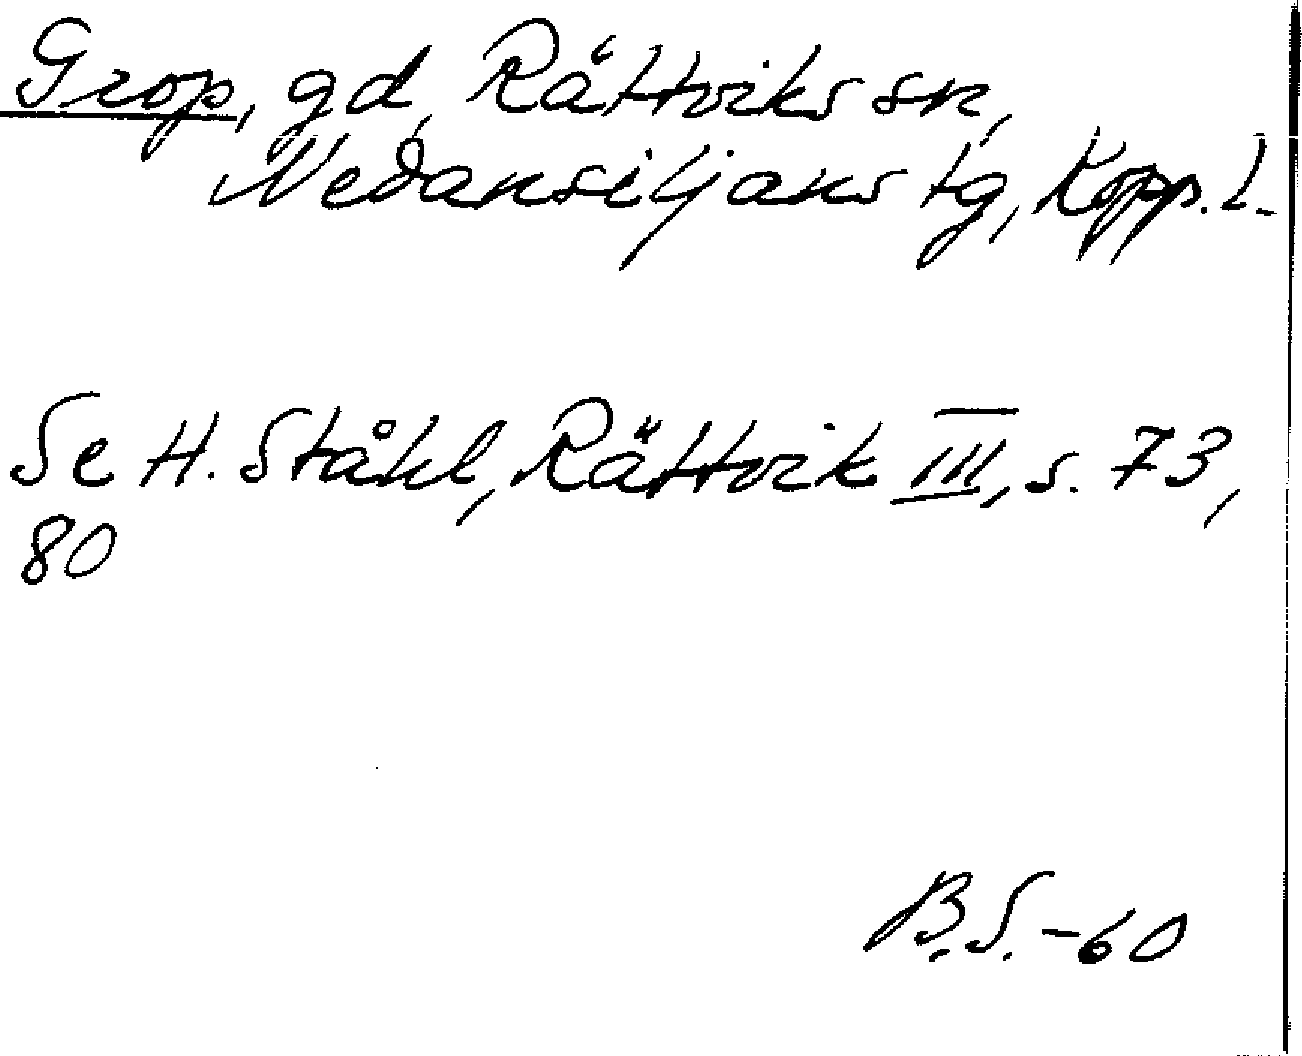 Grop, gd, Rättviks sn,
Nedansiljans tg, Kopp. l.
Se H. Ståhl, Rättvik III, s. 73,
80
B.S. -60